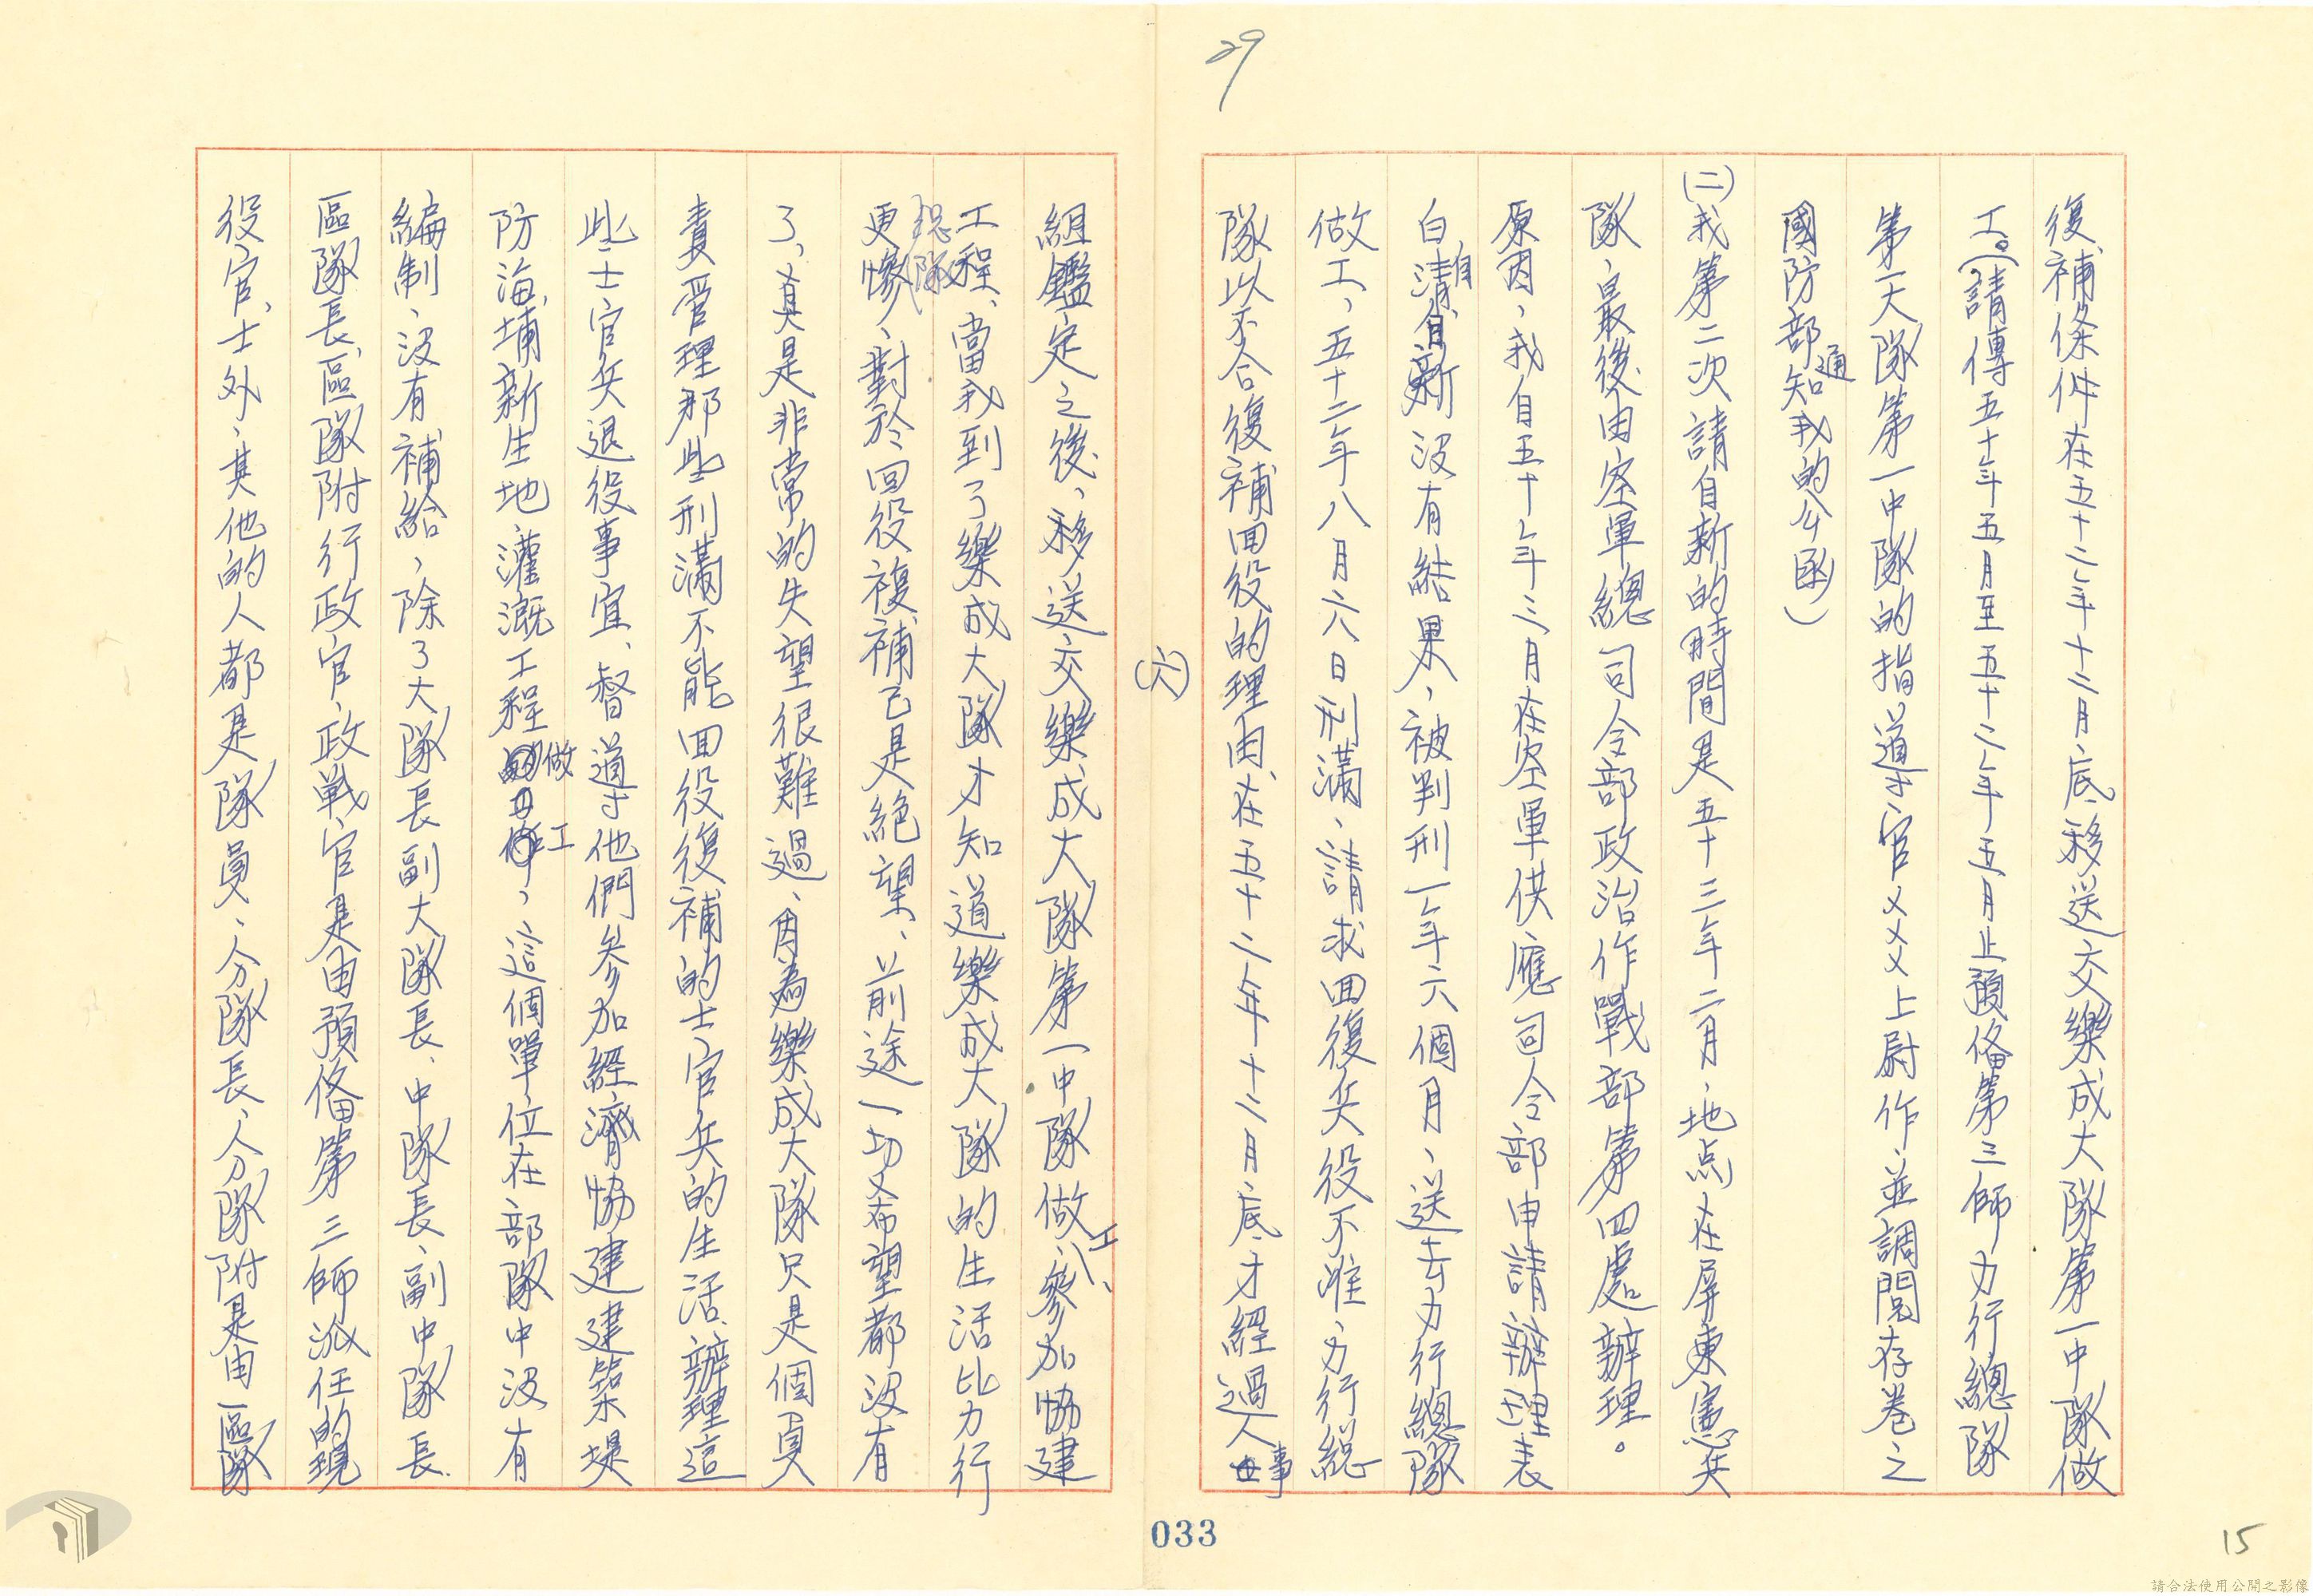 29
復補條件在五十二年十二月底移送交樂成大隊第一中隊做
工。(請傳五十年五月至五十二年五月止預備第三師力行總隊
第一大隊第一中隊的指導官××上尉作並調閱存卷之
國防部通知我的公函)
(二)我第二次請自新的時間是五十三年二月,地点在屏東憲兵
隊,最後由空軍總司令部政治作戰部第四處辦理。
原因,我自五十年三月在空軍供應司令部申請辦理表
白,請自新沒有結果,被判刑一年六個月,送去力行總隊
做工,五十二年八月六日刑滿,請求回復兵役不准,力行總
隊以不合復補回役的理由,在五十二年十二月底才經過人事
(六)
組鑑定之後,移送交樂成大隊第一中隊做工,參加協建
工程,當我到了樂成大隊才知道樂成大隊的生活比力行
總隊
更慘,對於回役複補已是絕望,前途一切希望都沒有
了,真是非常的失望很難過,因為樂成大隊只是個負
責管理那些刑滿不能回役復補的士官兵的生活,辦理這
些士官兵退役事宜,督導他們參加經濟協建建築堤
防海埔新生地灌溉工程做工,這個單位在部隊中沒有
編制,沒有補給,除了大隊長副大隊長、中隊長、副中隊長、
區隊長、區隊附行政官、政戰官是由預備第三師派任的現
役官、士外,其他的人都是隊員,分隊長、分隊附是由區隊
033
15
請合法使用公開之影像